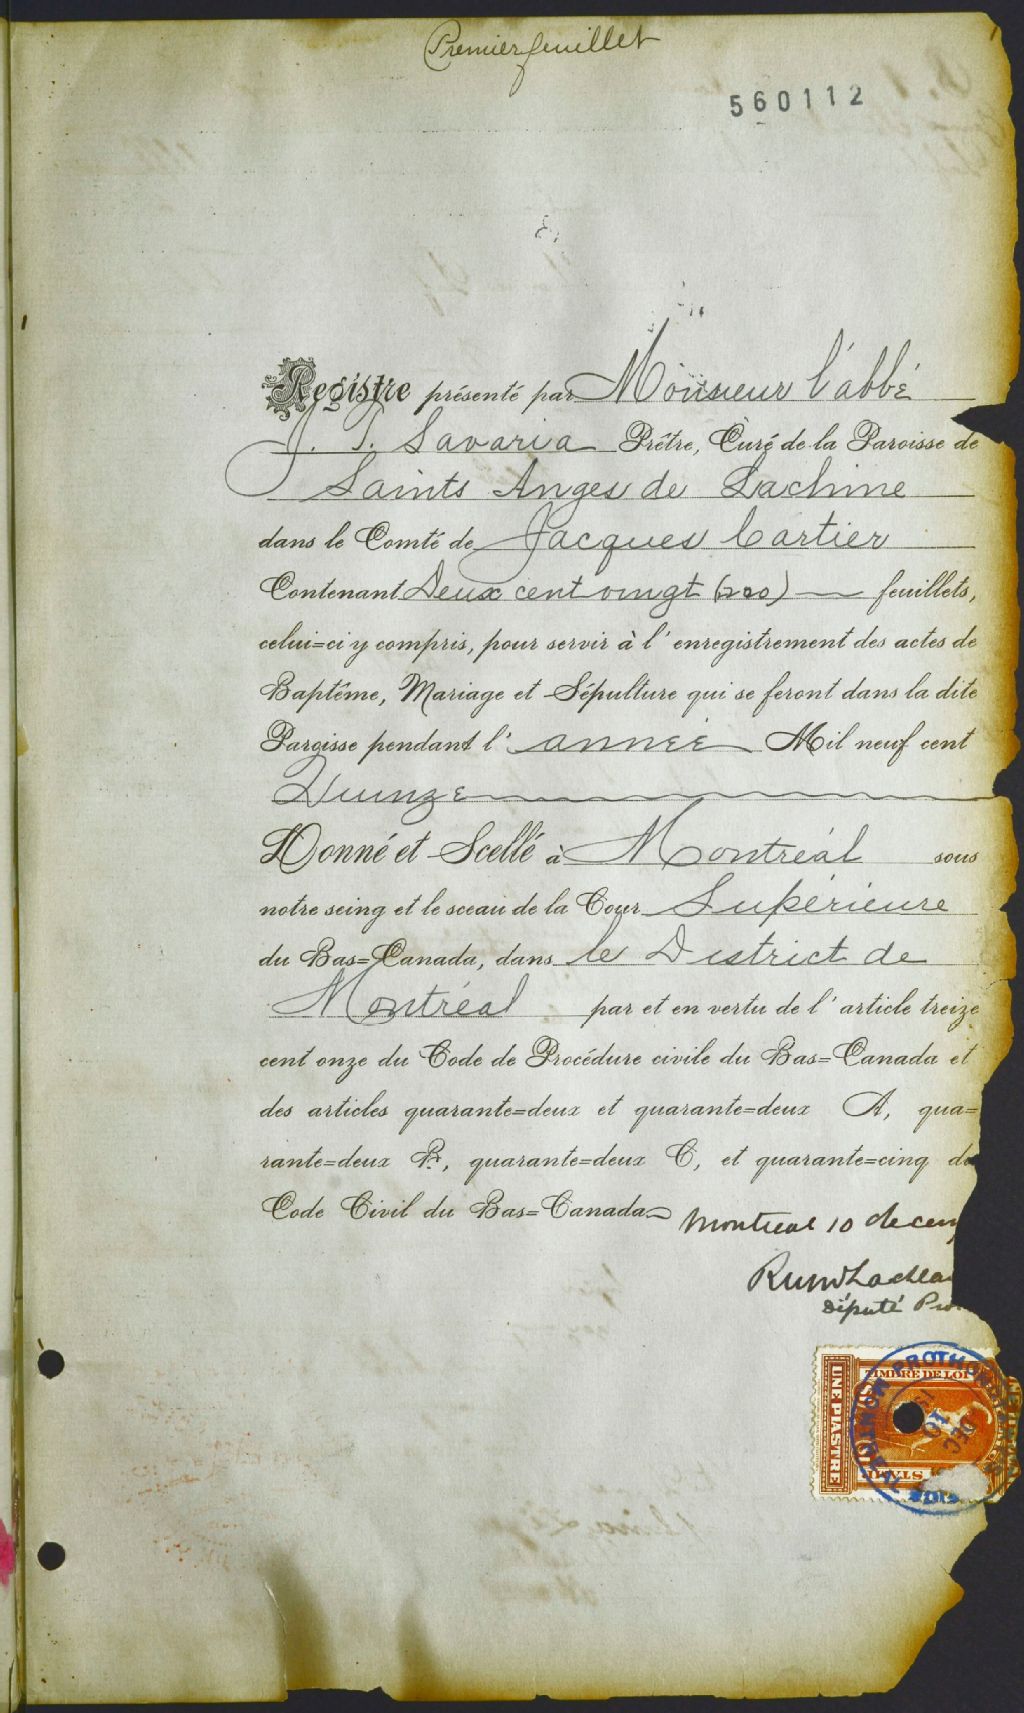 Premier feuillet
560112
Registre présenté par Monsieur l'abbé
J. T. Savaria Prêtre, Curé de la Paroisse de
Saints Anges de Lachine
dans le Comté de Jacques Cartier
Contenant Deux cent vingt (220) feuillets,
celui=ci y compris, pour servir à l'enregistrement des actes de
Baptême, Mariage et Sépulture qui se feront dans la dite
Paroisse pendant l'année Mil neuf cent
Quinze
Donné et Scellé à Montréal sous
notre seing et le sceau de la Cour Supérieure
du Bas=Canada, dans le District de
Montréal par et en vertu de l'article treize
cent onze du Code de Procédure civile du Bas=Canada et
des articles quarante=deux et quarante=deux A, qua=
rante=deux B, quarante=deux C, et quarante=cinq du
Code Civil du Bas=Canada
Montreal 10 decem
député Pro
TIMBRE DE LOI
UNE PIASTRE
MONTREAL
10
DEC